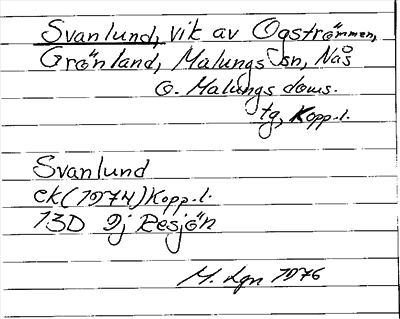 Svanlund, vik av Ogströmmen,
Grönland, Malungs sn, Nås
o. Malungs doms.
tg, Kopp. l.
Svanlund
ek (1974) Kopp. l.
13D 9j Resjön
M. Lgn 1976